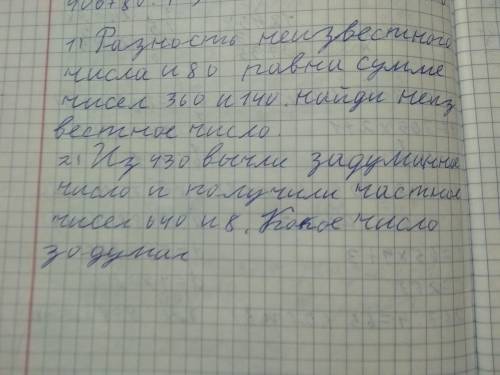 1) Разность неизвестного
числа и 80 равни сумме
чисел 360 и 140. найди неиз
вестное число.
2) Из 430 вычли задуминое
число и получили частное
чисел 640 и 8. Какое число
задумал